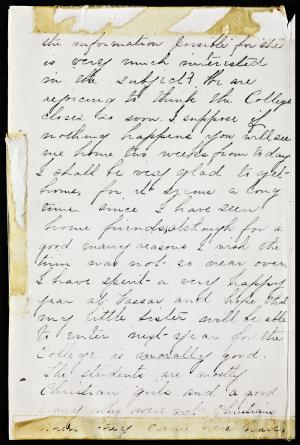 the information possible for she
is very much interested
in the subject. We are
rejoicing to think the College
closes so soon. I suppose if
nothing happens you will see
me home two weeks from to day
I shall be very glad to get
home, for it seems a long
time since I have seen
home friends, although for a
good many reasons I wish the
time was not so near over.
I have spent a very happy
year at Vassar and hope that
my little sister will be able
to enter next year for the
College is morally good.
The students are mostly
Christian girls and a good
many who were not Christians
when they came here have